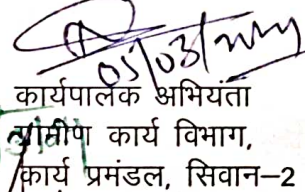 05/03/
कार्यपालक अभियंता
ग्रामीण कार्य विभाग,
कार्य प्रमंडल, सिवान–2